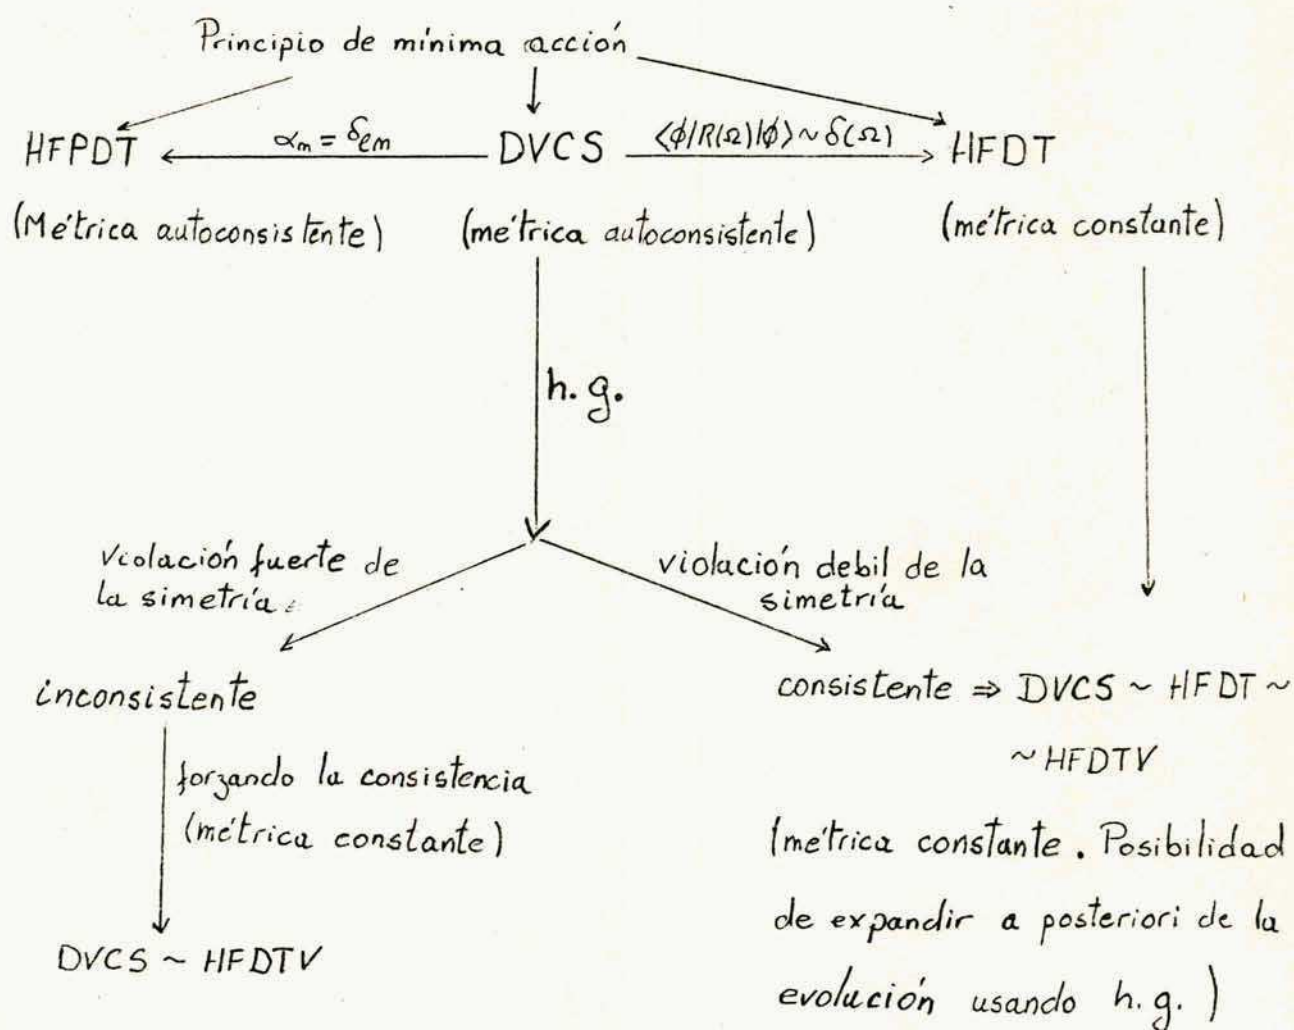 Principio de mínima acción
HFPDT
αₘ = δₑₘ
DVCS
⟨ϕ/R(Ω)/ϕ⟩ ~ δ(Ω)
HFDT
(Métrica autoconsistente)
(métrica autoconsistente)
(métrica constante)
h. g.
Violación fuerte de
la simetría
violación debil de la
simetría
inconsistente
consistente ⇒ DVCS ~ HFDT ~
~ HFDTV
forzando la consistencia
(métrica constante)
(métrica constante. Posibilidad
de expandir a posteriori de la
evolución usando h. g.)
DVCS ~ HFDTV